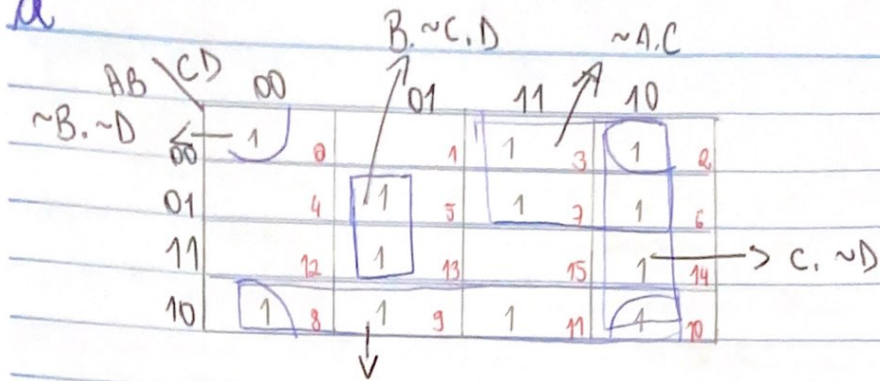 a
B.~C.D ~A.C
AB \ CD 00 01 11 10
~B.~D
00 1 0 1 1 3 1 2
01 4 1 5 1 7 1 6
11 12 1 13 15 1 14 C.~D
10 1 8 1 9 1 11 1 10